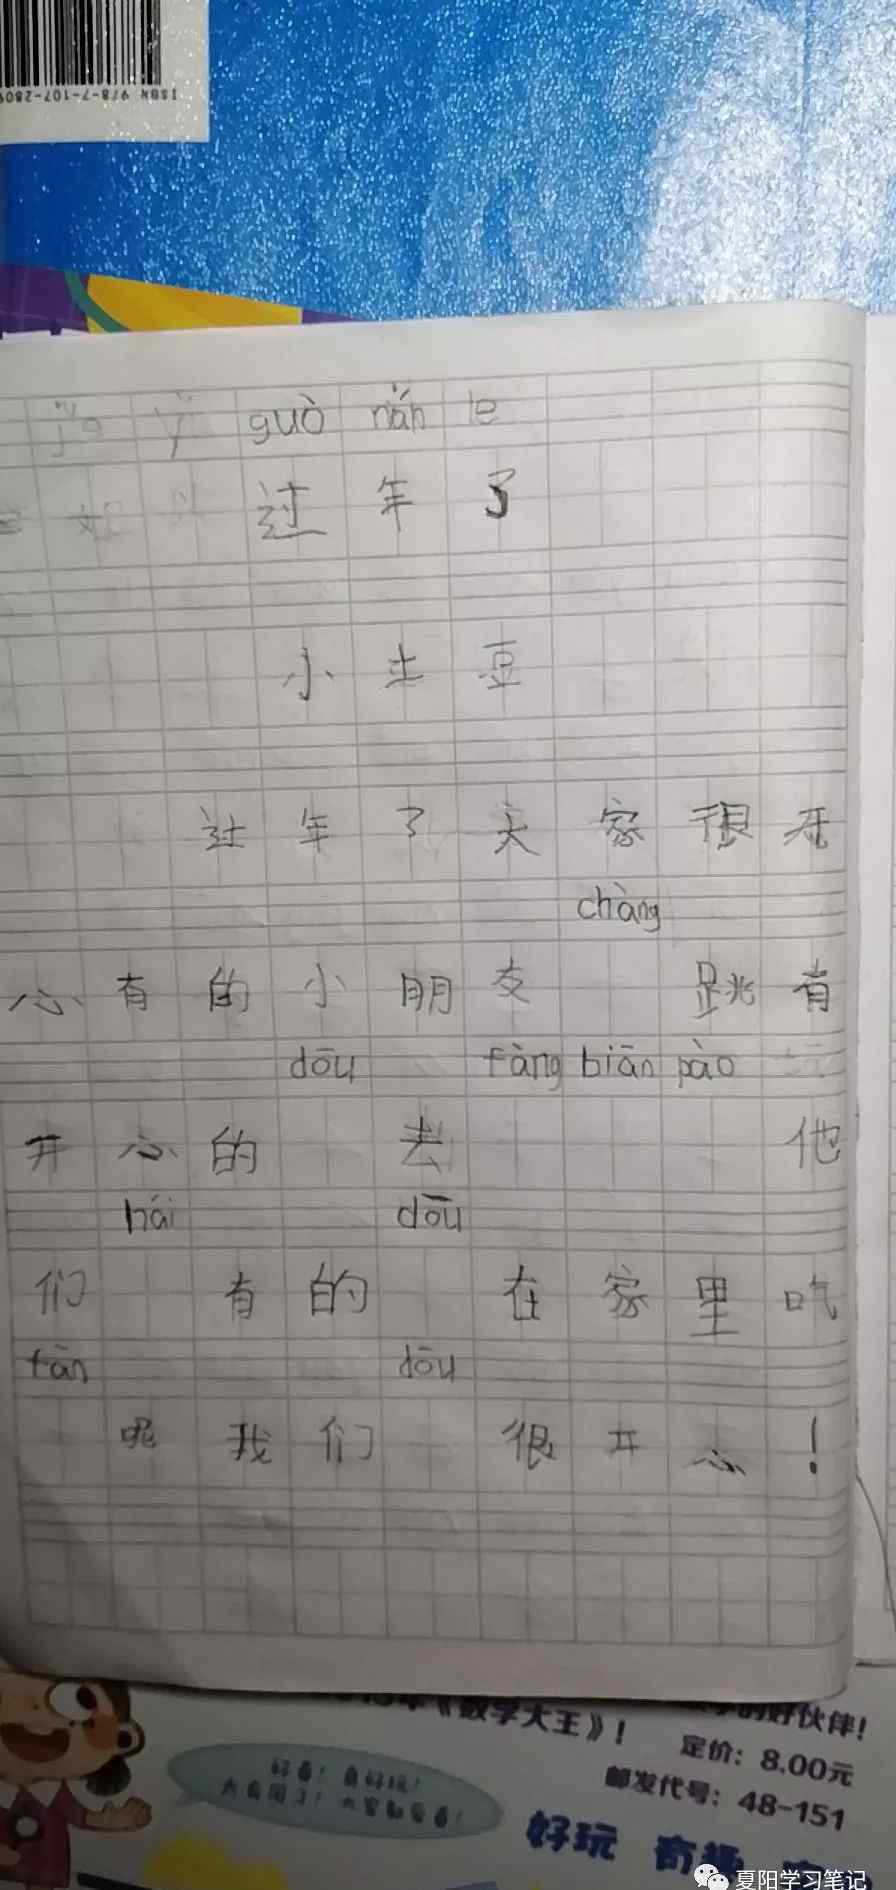 ISBN 978-7-107-2809
guò nián le
过年了
小土豆
过年了大家很开
chàng
心有的小朋友 跳有
dōu fàng biān pào
开心的 去 他
hái dōu
们 有的 在家里吃
fàn dōu
呢我们 很开心！
《数学大王》！ 的好伙伴！
定价：8.00元
邮发代号：48-151
好看！真好玩！
好玩 奇趣
夏阳学习笔记